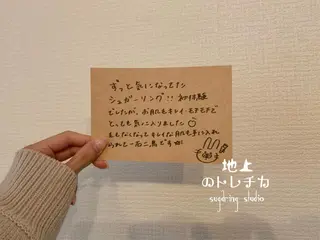 ずっと気になってた
シュガーリング!! 初体験
でしたが、お肌もキレイ・モチモチで
とっても気に入りました
毛もなくなってキレイな肌も手に入れ
られて一石二鳥ですね
地上
のトレチカ
sugaring studio